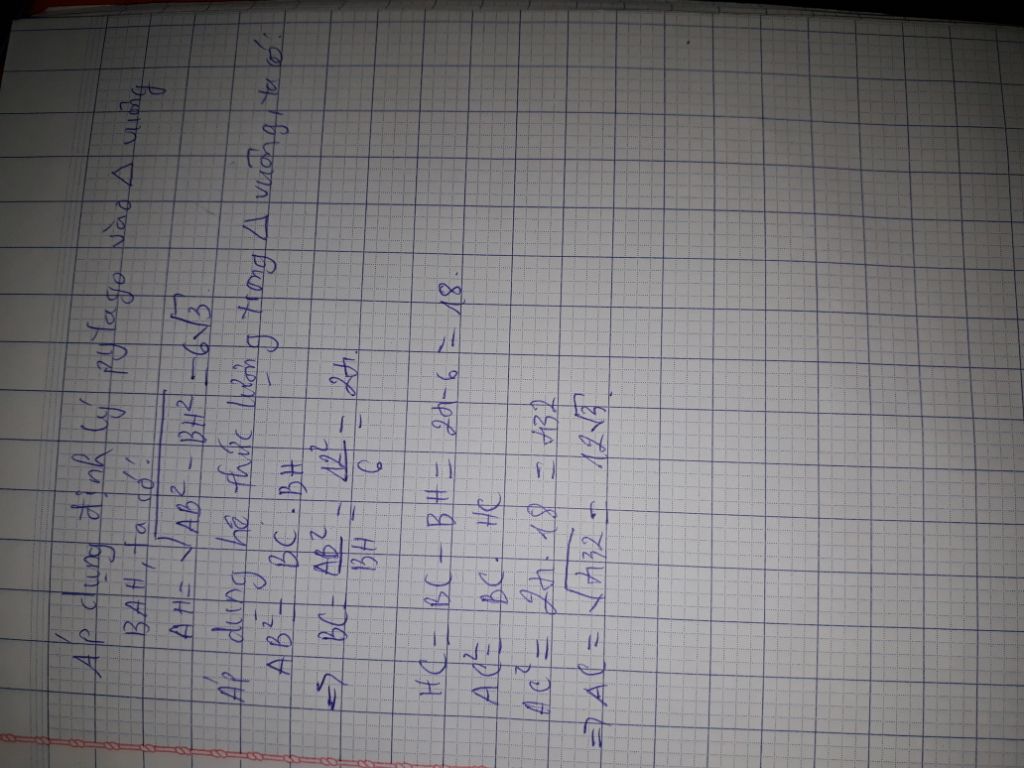 Áp dụng định lý pytago vào Δ vuông
BAH, ta có:
AH = √AB² - BH² = 6√3
Áp dụng hệ thức lượng trong Δ vuông, ta có:
AB² = BC . BH
=> BC = AB²/BH = 12²/6 = 24.
HC = BC - BH = 24 - 6 = 18.
AC² = BC . HC
AC² = 24 . 18 = 432
=> AC = √432 = 12√3.